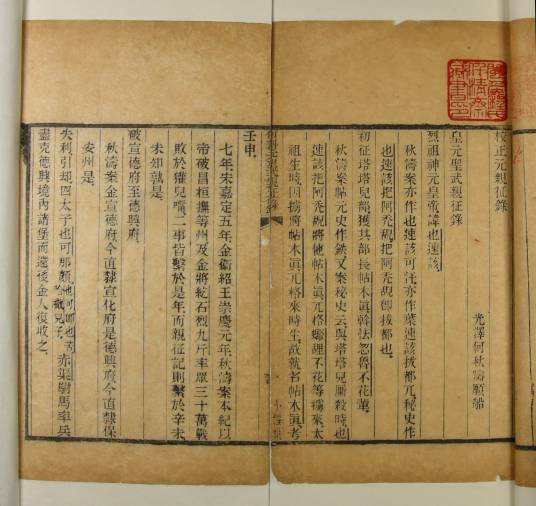 校正元親征錄
光澤何秋濤願船
皇元聖武親征錄
烈祖神元皇帝諱也速該
秋濤案亦作也速該可汗亦作葉速該拔都元秘史作
也速該把阿禿兒把阿禿兒卽拔都也
初征塔塔兒部獲其部長帖木真斡怯忽魯不花輩
秋濤案帖元史作鐵又案秘史云與塔塔兒廝殺時也
速該把阿禿兒將他帖木真兀格豁里不花等擄來太
祖生時因擄將帖木真兀格來時生故就名帖木真考
壬申
七年宋嘉定五年金衞紹王崇慶元年秋濤案本紀以
帝破昌桓撫等州及金將紇石烈九斤率眾三十萬戰
敗於獾兒嘴二事皆繫於是年而親征記則繫於辛未
未知孰是
破宣德府至德興府
秋濤案金宣德府今直隸宣化府是德興府今直隸保
安州是
失利引却四太子也可那顏赤渠駙馬率兵
盡克德興境內諸堡而還後金人復收之